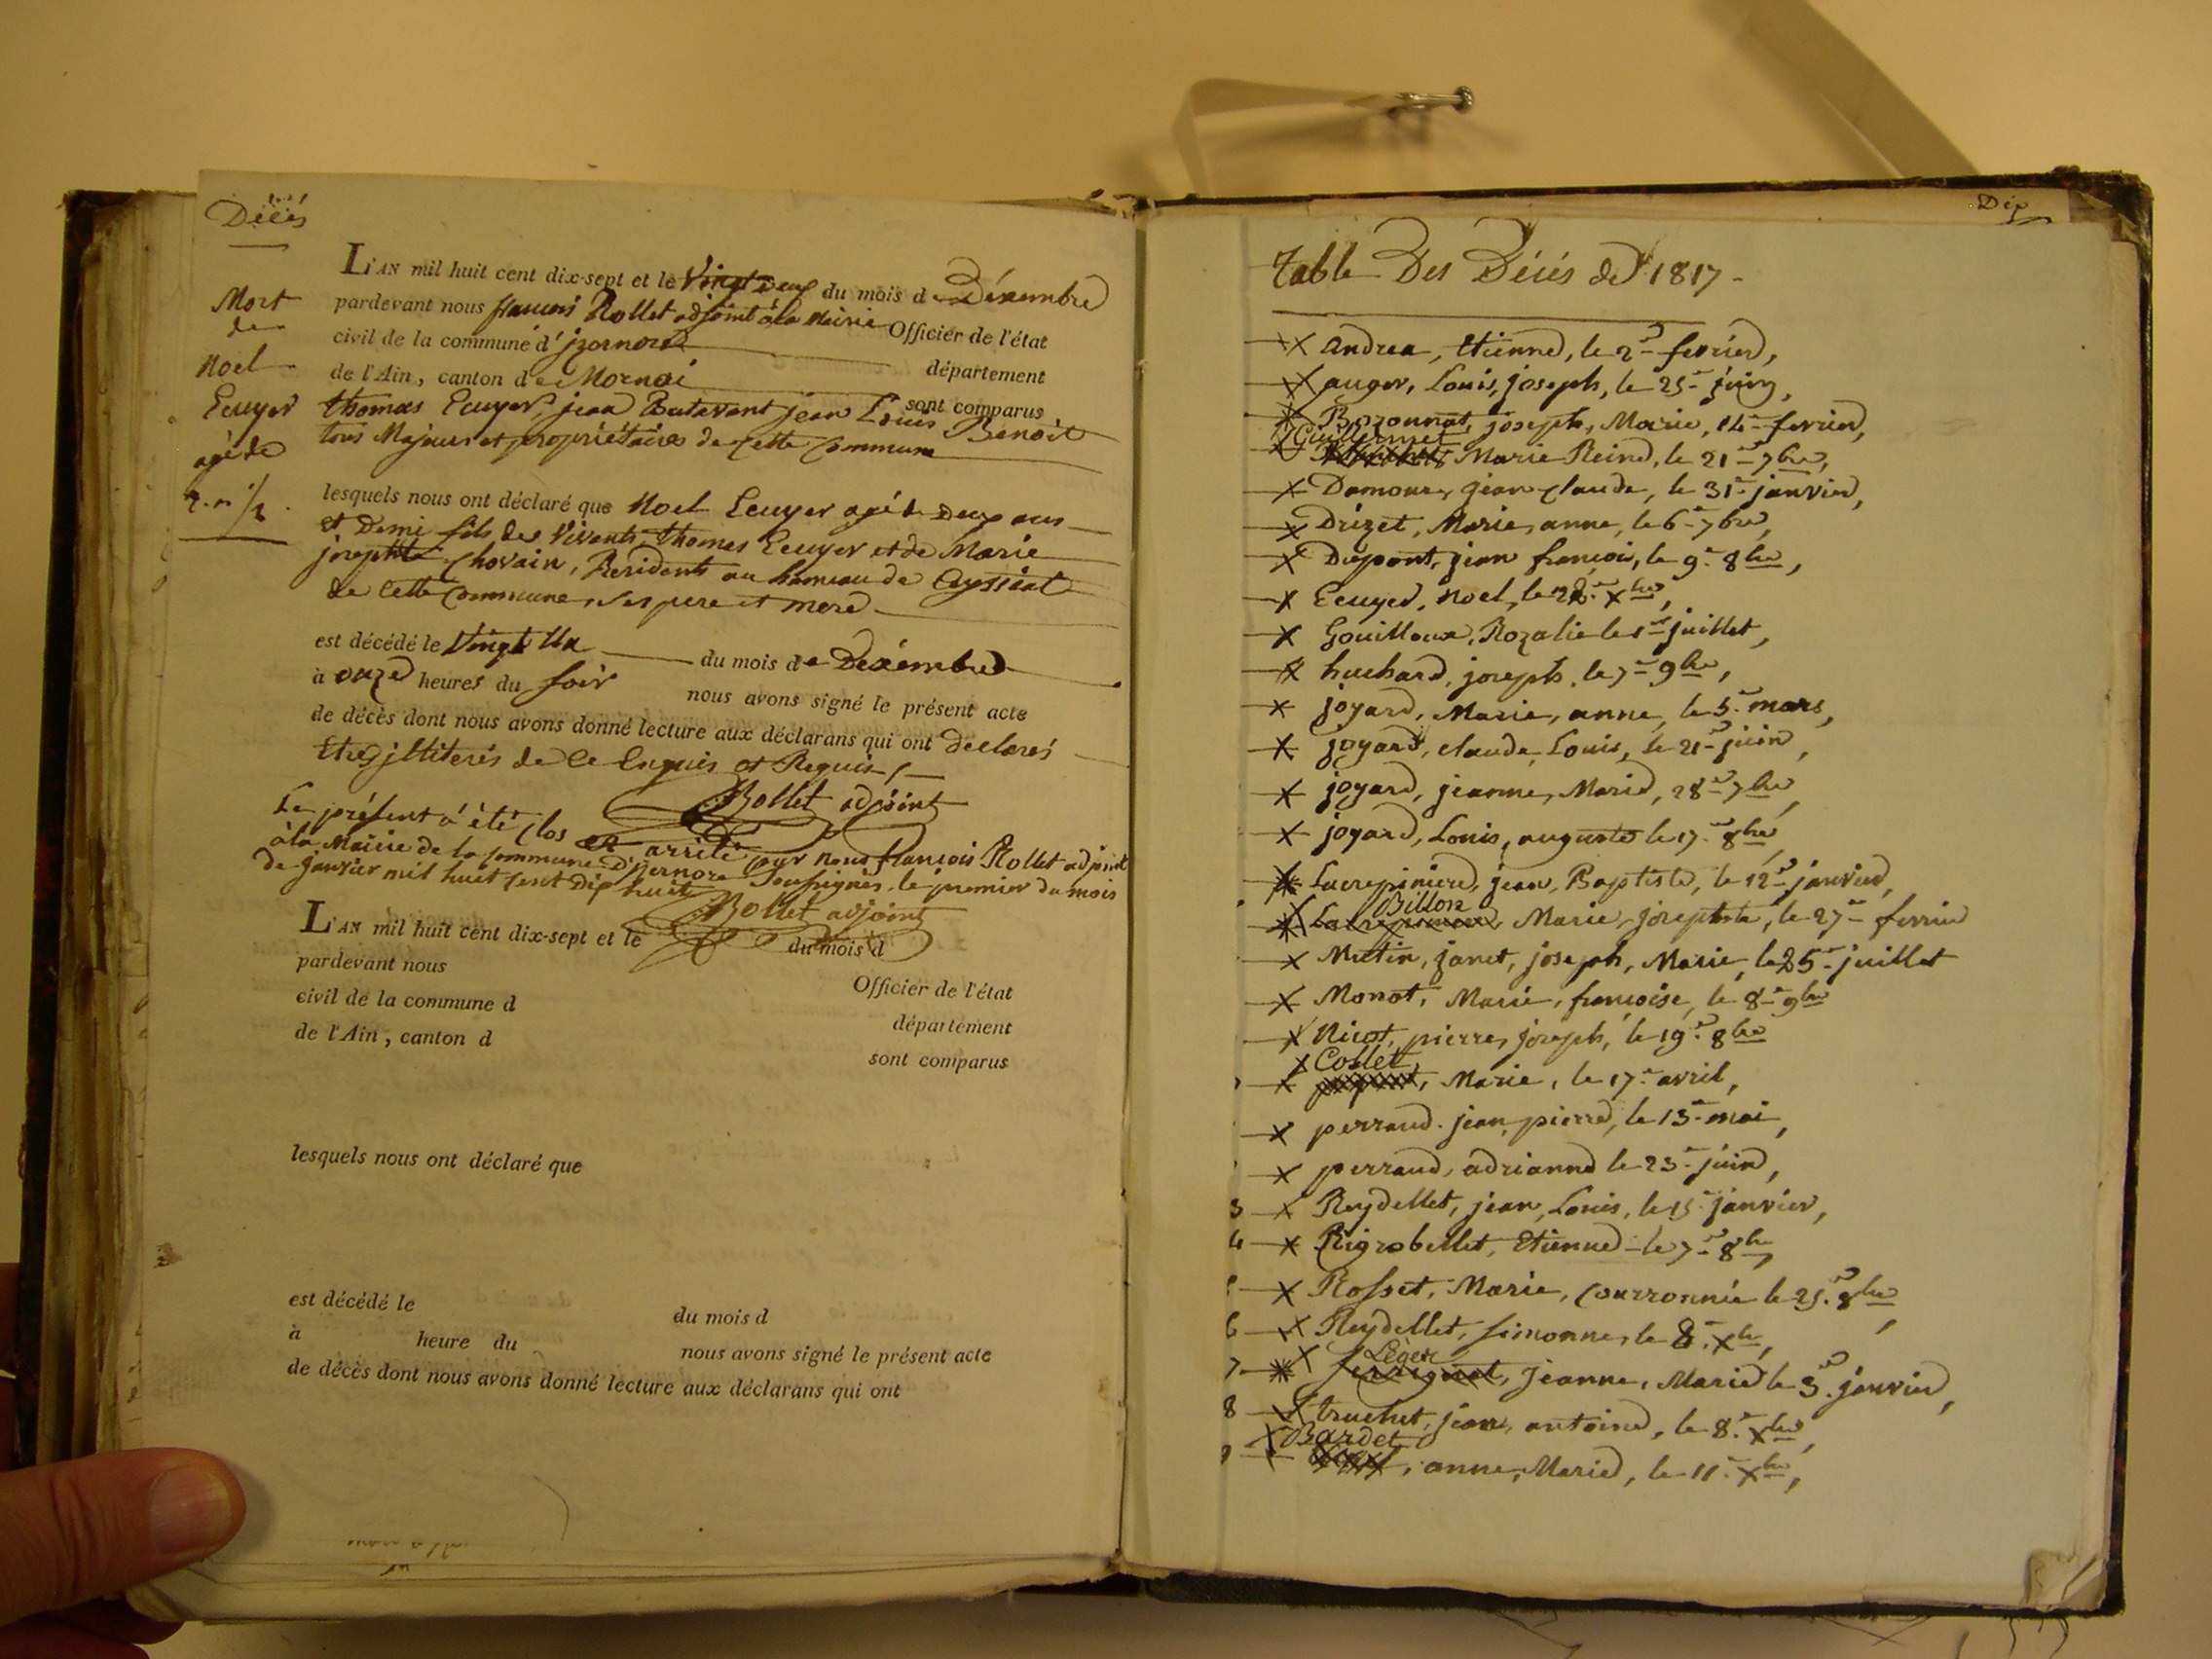 Décés
L'AN mil huit cent dix-sept et le Vingt Deux du mois de Décembre
pardevant nous françois Rollet adjoint à la Mairie Officier de l'état
civil de la commune d'jzernore département
de l'Ain, canton de Mornai sont comparus
thomas Ecuyer, jean Butavant jean Louis Benoit
tous Majeurs et propriétaires de cette commune
Mort
de
Noel
Ecuyer
agé de
2. a 1/2
lesquels nous ont déclaré que Noel Ecuyer agé de Deux ans
et Demi fils des Vivants thomas Ecuyer et de Marie
josephte Chovain, Residents au hameau de Ceyssiat
de cette commune, ses pere et mere
est décédé le Vingt Un du mois de Dexémbre
à onze heures du soir nous avons signé le présent acte
de décès dont nous avons donné lecture aux déclarans qui ont declarés
être jlliterés de ce Enquis et Requis
Rollet adjoint
Le présent a été clos et arrété par nous françois Rollet adjoint
à la Mairie de la commune D'jzernore Soussignés, le premier du mois
de janvier mil huit cent dix huit
Rollet adjoint
L'AN mil huit cent dix-sept et le du mois d
pardevant nous
civil de la commune d Officier de l'état
de l'Ain, canton d département
sont comparus
lesquels nous ont déclaré que
est décédé le du mois d
à heure du nous avons signé le présent acte
de décès dont nous avons donné lecture aux déclarans qui ont
Dix
Table Des Décés de 1817
X andrea, Etienne, le 2 fevrier,
X auger, Louis, joseph, le 25 juin,
X Bozonnat, joseph, Marie, 14 fevrier,
X Guillermet Marie Reine, le 21 7bre,
X Damour, jean claude, le 31 janvier,
X Drizet, Marie, anne, le 6 7bre,
X Dupont, jean françois, le 9 8bre,
X Ecuyer, Noel, le 22 Xbre,
X Gouilloux, Rozalie le 1er juillet,
X huchard, joseph, le 7 9bre,
X joyard, Marie, anne, le 5 mars,
X joyard, claude, Louis, le 21 juin,
X joyard, jeanne, Marie, 28 7bre,
X joyard, Louis, auguste le 17 8bre,
X Lacrepiniere, jean, Baptiste, le 12 janvier,
X Billon Marie, josephte, le 27 fevrier
X Mutin, janet, joseph, Marie, le 25 juillet
X Monot, Marie, françoise, le 8 9bre
X Nicot, pierre, joseph, le 19 8bre
X Collet, Marie, le 17 avril,
X perraud. jean, pierre, le 13 mai,
X perraud, adrianne le 23 juin,
3 X Reydellet, jean, Louis, le 15 janvier,
4 X Rigrobellet, Etienne le 7 8bre
X Rosset, Marie, Courronnée le 25 8bre,
6 X Reydellet, simonne, le 8 Xbre,
7 X Léger jeanne, Marie le 3 janvier,
8 X truchet, jean, antoine, le 8 Xbre,
9 X Bardet, anne, Marie, le 11 Xbre,